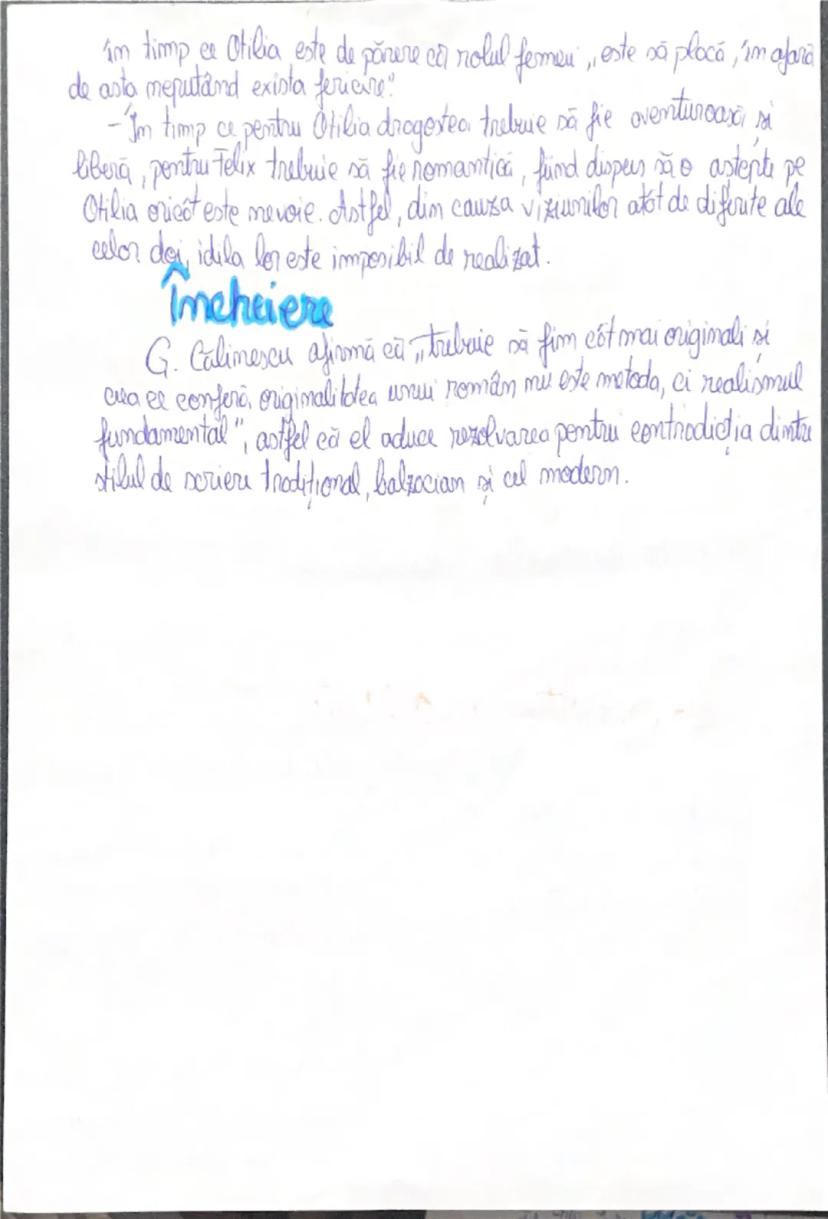 în timp ce Otilia este de părere că rolul femeii „este să placă, în afară
de asta neputând exista fericire."
-În timp ce pentru Otilia dragostea trebuie să fie aventuroasă și
liberă, pentru Felix trebuie să fie romantică, fiind dispus să o aștepte pe
Otilia oricât este nevoie. Astfel, din cauza viziunilor atât de diferite ale
celor doi, idila lor este imposibil de realizat.
Încheiere
G. Călinescu afirmă că „trebuie să fim cât mai originali și
ceea ce conferă originalitatea unui român nu este metoda, ci realismul
fundamental", astfel că el aduce rezolvarea pentru contradicția dintre
stilul de scriere tradițional, balzacian și cel modern.